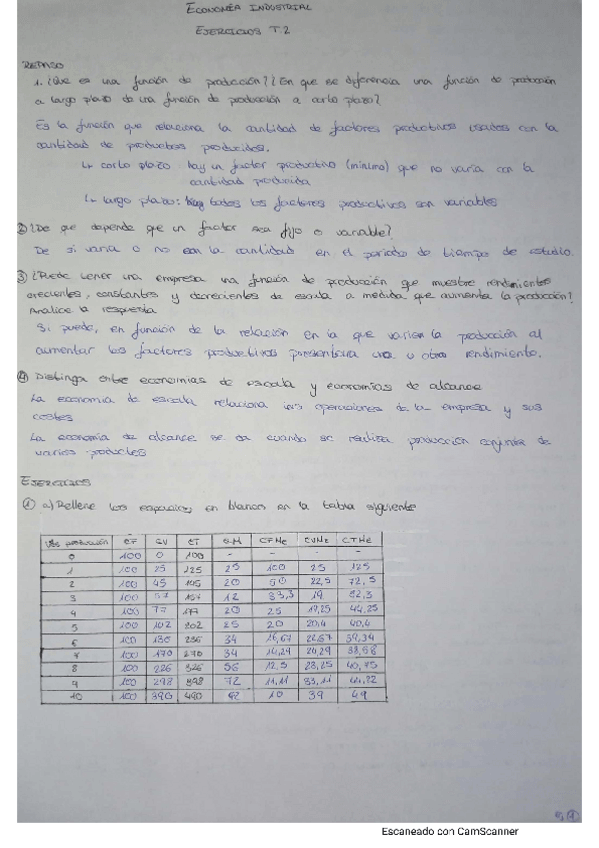 ECONOMÍA INDUSTRIAL
EJERCICIOS T.2
REPASO
1. ¿Que es una función de producción? ¿En que se diferencia una función de producción
a largo plazo de una función de producción a corto plazo?
Es la función que relaciona la cantidad de factores productivos usados con la
cantidad de productos producidos.
↳ corto plazo hay un factor productivo (mínimo) que no varía con la
cantidad producida
↳ largo plazo: todos los factores productivos son variables
2) ¿De que depende que un factor sea fijo o variable?
De si varia o no con la cantidad en el periodo de tiempo de estudio.
3) ¿Puede tener una empresa una función de producción que muestre rendimientos
crecientes, constantes y decrecientes de escala a medida que aumenta la producción?
Analice la respuesta
Si puede, en función de la relación en la que varien la producción al
aumentar los factores productivos presentara un u otro rendimiento.
4) Distinga entre economías de escala y economías de alcance
La economía de escala relaciona las operaciones de la empresa y sus
costes
La economía de alcance se da cuando se realiza producción conjunta de
varios productos
EJERCICIOS
1) a) Rellene los espacios en blanco en la tabla siguiente
producción CF CV CT CM CFMe CVMe CTMe
0 100 0 100 - - - -
1 100 25 125 25 100 25 125
2 100 45 145 20 50 22,5 72,5
3 100 57 157 12 33,3 19 52,3
4 100 77 177 20 25 19,25 44,25
5 100 102 202 25 20 20,4 40,4
6 100 136 236 34 16,67 22,67 39,34
7 100 170 270 34 14,29 24,29 38,58
8 100 226 326 56 12,5 28,25 40,75
9 100 298 398 72 11,11 33,11 44,22
10 100 390 490 10 39 49
Escaneado con CamScanner